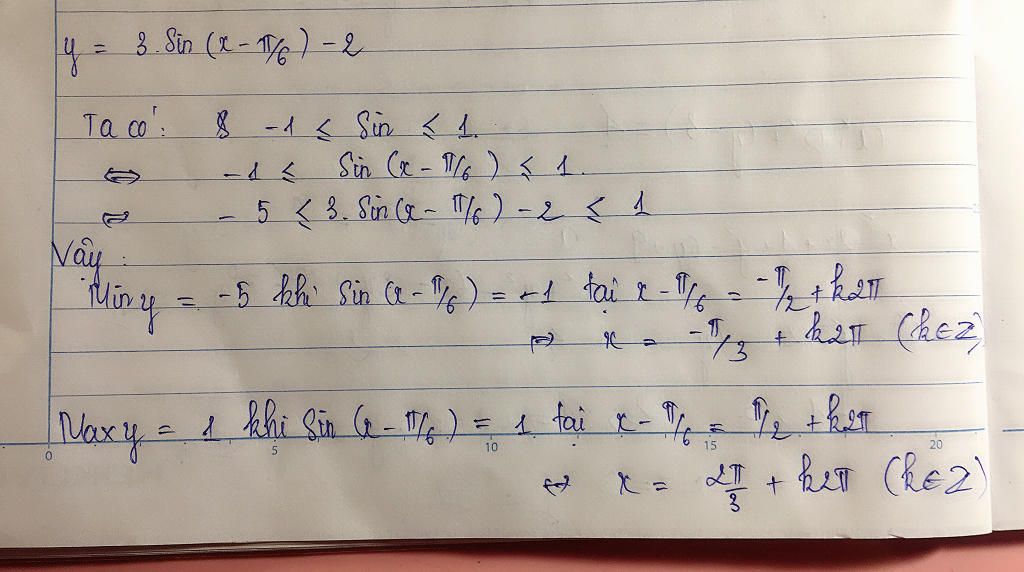 y = 3.Sin (x - π/6) - 2
Ta có: -1 ≤ Sin ≤ 1.
⇔ -1 ≤ Sin (x - π/6) ≤ 1.
⇔ -5 ≤ 3.Sin(x - π/6) - 2 ≤ 1
Vậy :
Min y = -5 khi Sin (x - π/6) = -1 tại x - π/6 = -π/2 + k2π
⇔ x = -π/3 + k2π (k∈Z)
Max y = 1 khi Sin (x - π/6) = 1 tại x - π/6 = π/2 + k2π
0 5 10 15 20
⇔ x = 2π/3 + k2π (k∈Z)